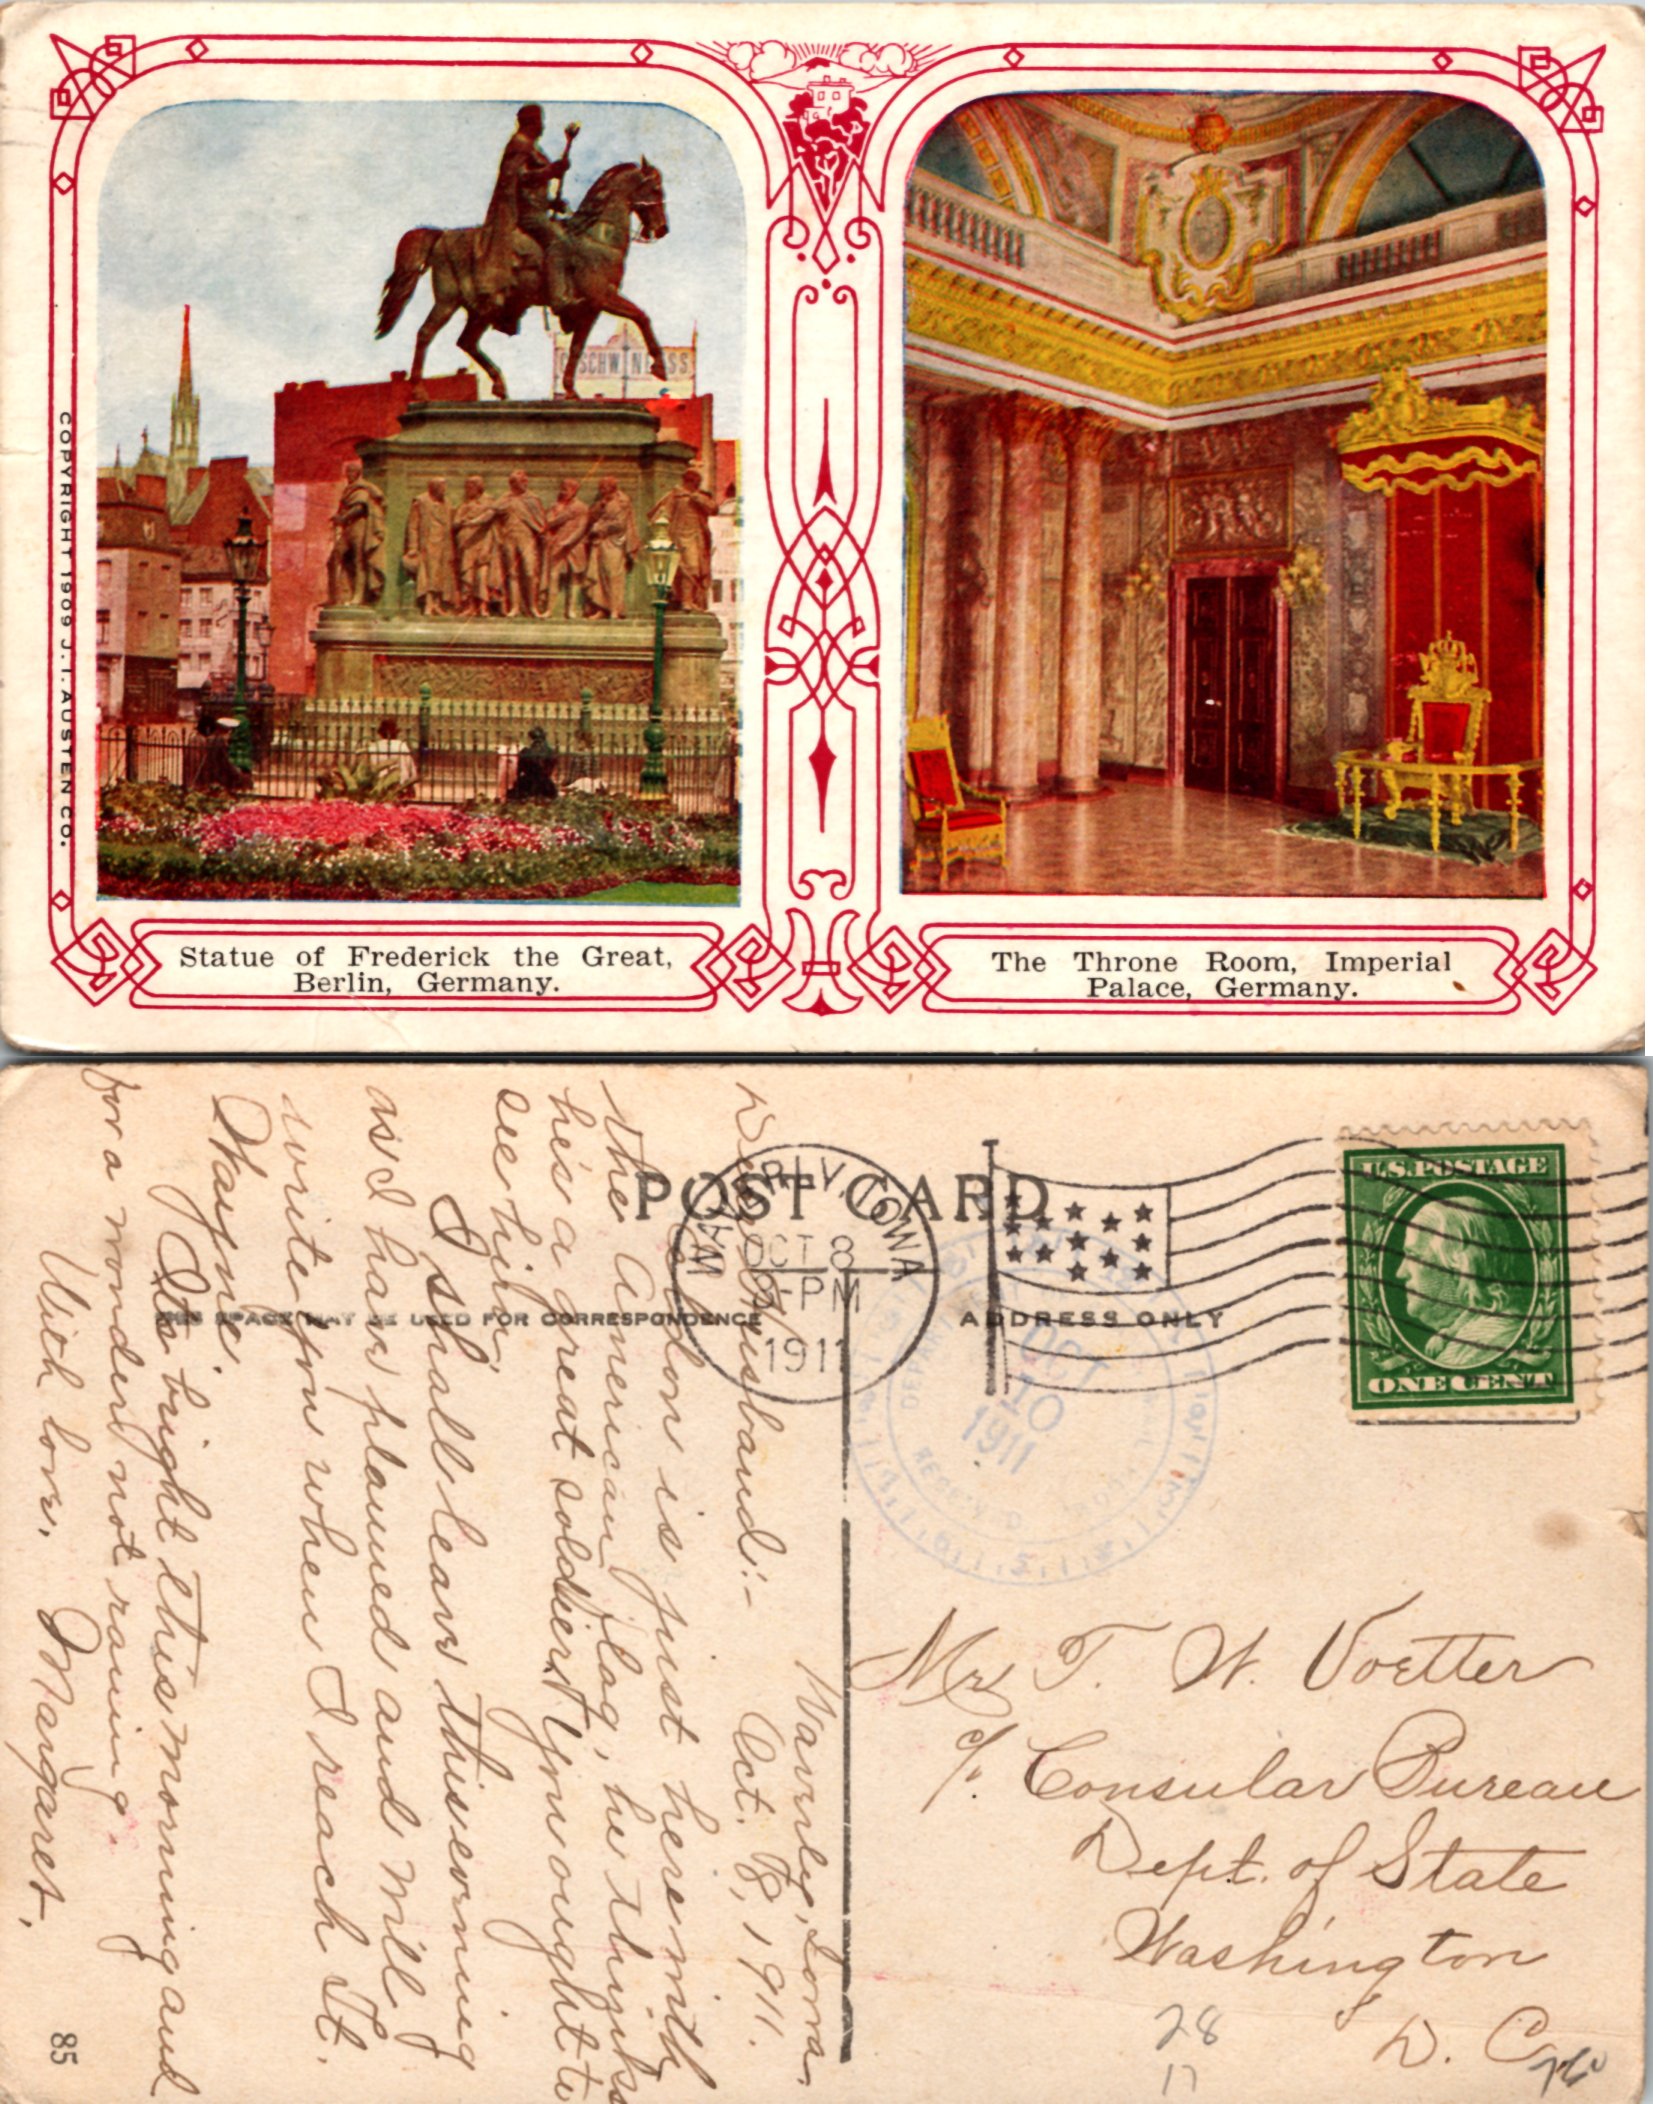 COPYRIGHT 1909 J. I. AUSTEN CO.
GESCHWINDSS
Statue of Frederick the Great,
Berlin, Germany.
The Throne Room, Imperial
Palace, Germany.
POST CARD
THIS SPACE MAY BE USED FOR CORRESPONDENCE
ADDRESS ONLY
WAVERLY, IOWA
OCT 8
-PM
1911
U.S. POSTAGE
ONE CENT
OCT
10
1911
Waverly, Iowa.
Oct. 8, 1911.
Dear Husband:-
is just here with
the American flag, he thinks
he's a great soldier. You ought to
see him.
I shall leave this evening
as I have planned and will
write you when I reach Ft.
Wayne.
Its bright this morning and
for a wonder not raining.
With love,
Margaret.
85
Mr T. W. Voetter
c/o Consular Bureau
Dept. of State
Washington
D. C.
28
17